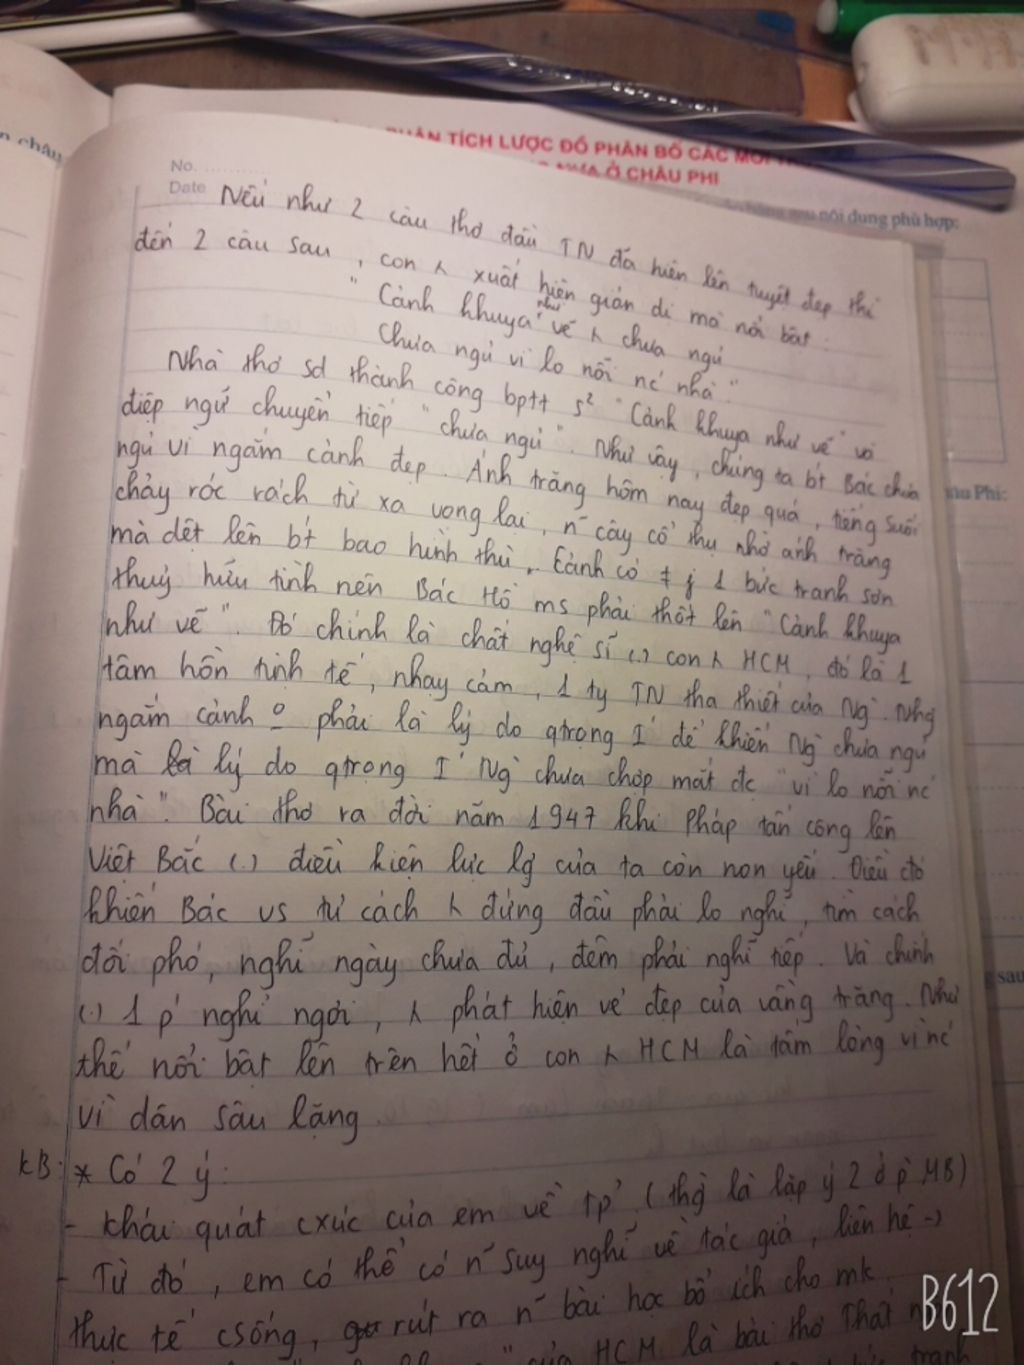 PHÂN TÍCH LƯỢC ĐỒ PHÂN BỐ CÁC MÔI
Ở CHÂU PHI
châu
nội dung phù hợp:
Phi:
sau
No.
Date
Nếu như 2 câu thơ đầu TN đã hiện lên tuyệt đẹp thì
đến 2 câu sau, con ʎ xuất hiện giản dị mà nổi bật:
"Cảnh khuya như vẽ ʎ chưa ngủ
Chưa ngủ vì lo nỗi nc´ nhà".
Nhà thơ sd thành công bptt s² "Cảnh khuya như vẽ" và
điệp ngữ chuyển tiếp "chưa ngủ". Như vậy, chúng ta bt Bác chưa
ngủ vì ngắm cảnh đẹp. Ánh trăng hôm nay đẹp quá, tiếng suối
chảy róc rách từ xa vọng lại, n~ cây cổ thụ nhờ ánh trăng
mà dệt lên bt bao hình thù. Cảnh có ‡ j 1 bức tranh sơn
thuỷ hữu tình nên Bác Hồ ms phải thốt lên "Cảnh khuya
như vẽ". Đó chính là chất nghệ sĩ (.) con ʎ HCM, đó là 1
tâm hồn tinh tế, nhạy cảm, 1 ty TN tha thiết của Ng`. Nhg
ngắm cảnh o phải là lý do qtrọng I´ để khiến Ng` chưa ngủ
mà là lý do qtrọng I´ Ng` chưa chợp mắt đc "vì lo nỗi nc´
nhà". Bài thơ ra đời năm 1947 khi Pháp tấn công lên
Việt Bắc (.) điều kiện lực lg của ta còn non yếu. Điều đó
khiến Bác vs tư cách ʎ đứng đầu phải lo nghĩ, tìm cách
đối phó, nghĩ ngày chưa đủ, đêm phải nghĩ tiếp. Và chính
(.) 1 p´ nghỉ ngơi, ʎ phát hiện vẻ đẹp của vầng trăng. Như
thế nổi bật lên trên hết ở con ʎ HCM là tấm lòng vì nc´
vì dân sâu lặng.
KB: * Có 2 ý:
- khái quát cxúc của em về tp? (thg` là lặp ý 2 ở p` MB)
- Từ đó, em có thể có n~ suy nghĩ về tác giả, liên hệ →
thực tế csống, rút ra n~ bài học bổ ích cho mk.
của HCM là bài thơ Thất
tranh
B612